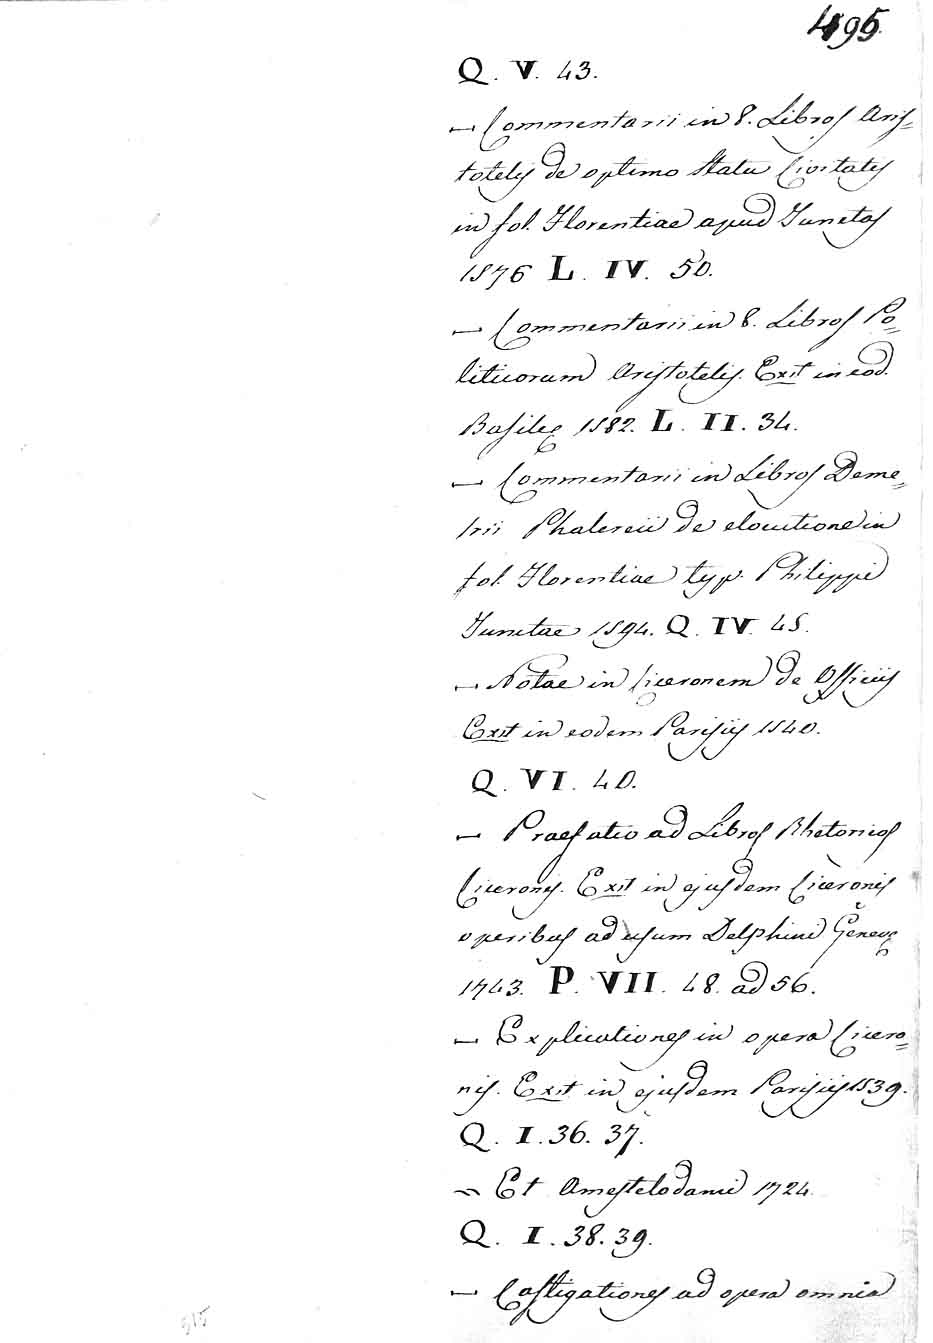 495.
Q. V. 43.
— Commentarii in 8. Libros Aris=
totelis de optimo statu Civitatis
in fol. Florentiae apud Junctas
1576 L. IV. 50.
— Commentarii in 8. Libros Po=
liticorum Aristotelis. Exit in eod.
Basileę 1582. L. II. 34.
— Commentarii in Libros Deme=
trii Phalereii de elocutione in
fol. Florentiae typ. Philippi
Junctae 1594. Q. IV. 45.
— Notae in Ciceronem de Officiis
Exit in eodem Parisiis 1540.
Q. VI. 40.
— Praefatio ad Libros Rhetoricos
Ciceronis. Exit in ejusdem Ciceronis
operibus ad usum Delphini Genevę
1743. P. VII. 48. ad 56.
— Explicationes in opera Cicero=
nis. Exit in ejusdem Parisiis 1539.
Q. I. 36. 37.
~ Et Amestelodami 1724.
Q. I. 38. 39.
— Castigationes ad opera omnia
515